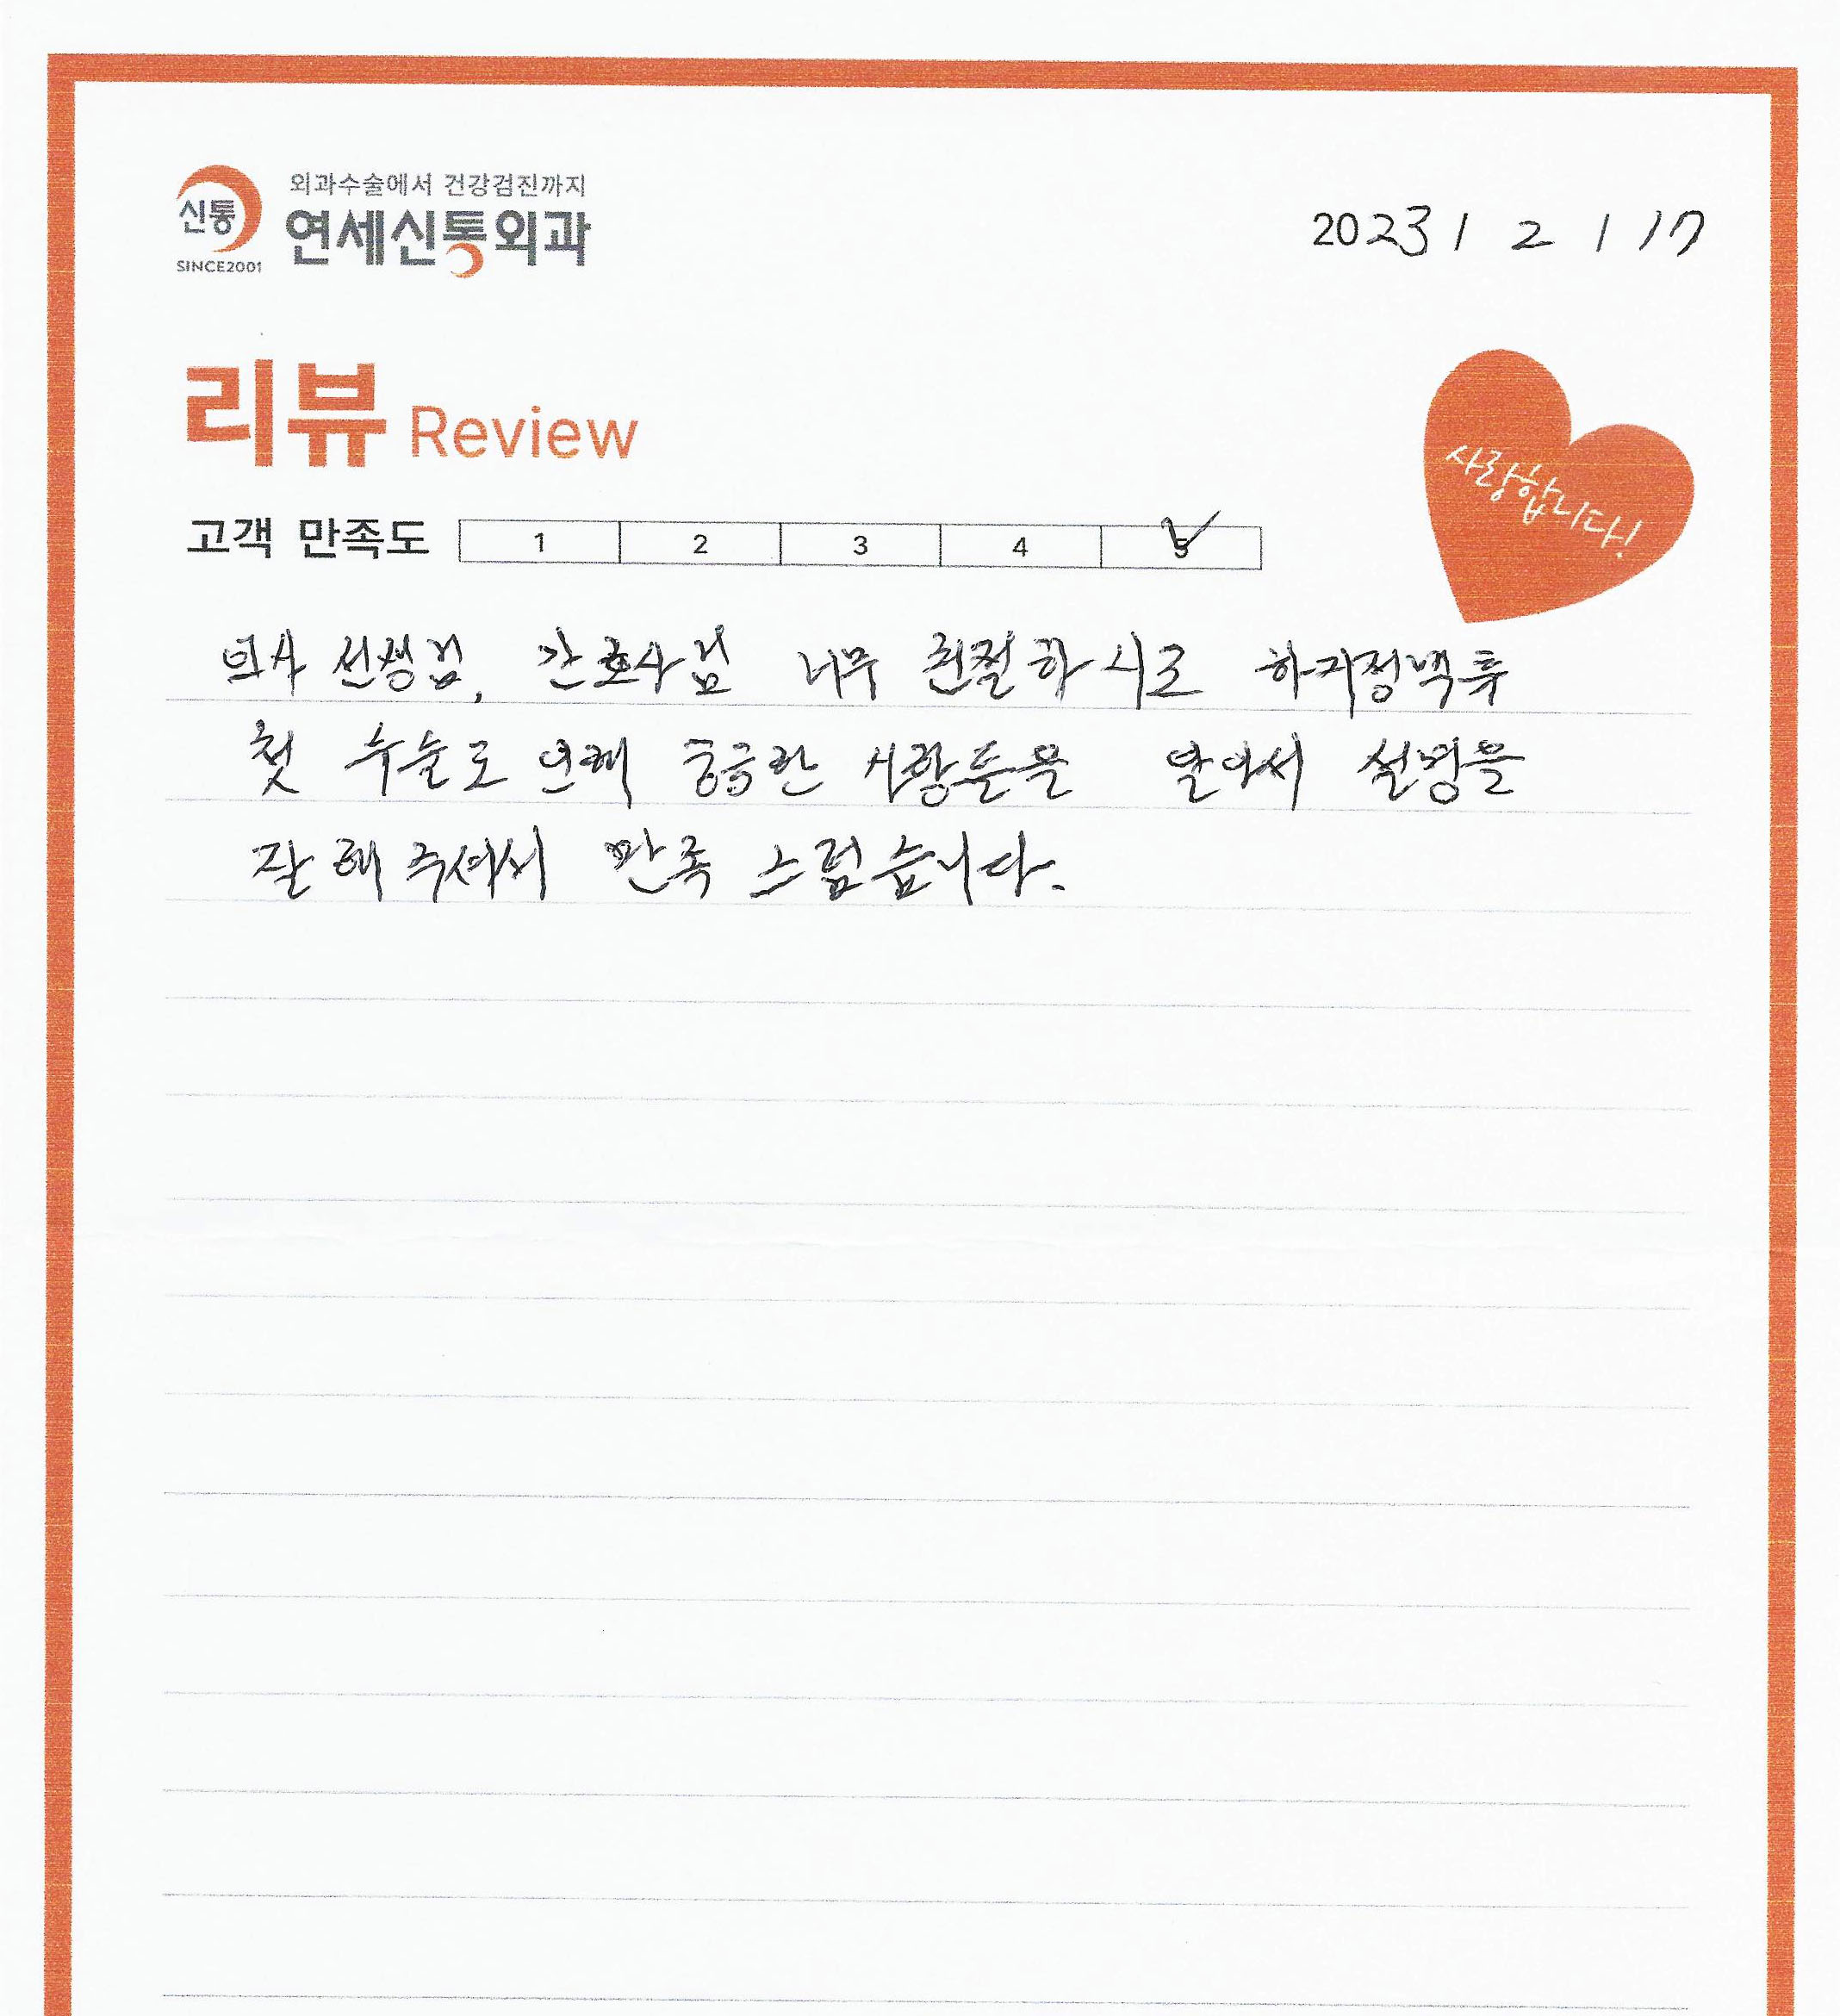 외과수술에서 건강검진까지
신통 연세신통외과
SINCE2001
2023 / 2 / 17
리뷰 Review
사랑합니다!
고객 만족도 1 2 3 4 5
의사 선생님, 간호사님 너무 친절하시고 하지정맥류
첫 수술로 인해 궁금한 사항들을 알아서 설명을
잘 해 주셔서 만족 스럽습니다.